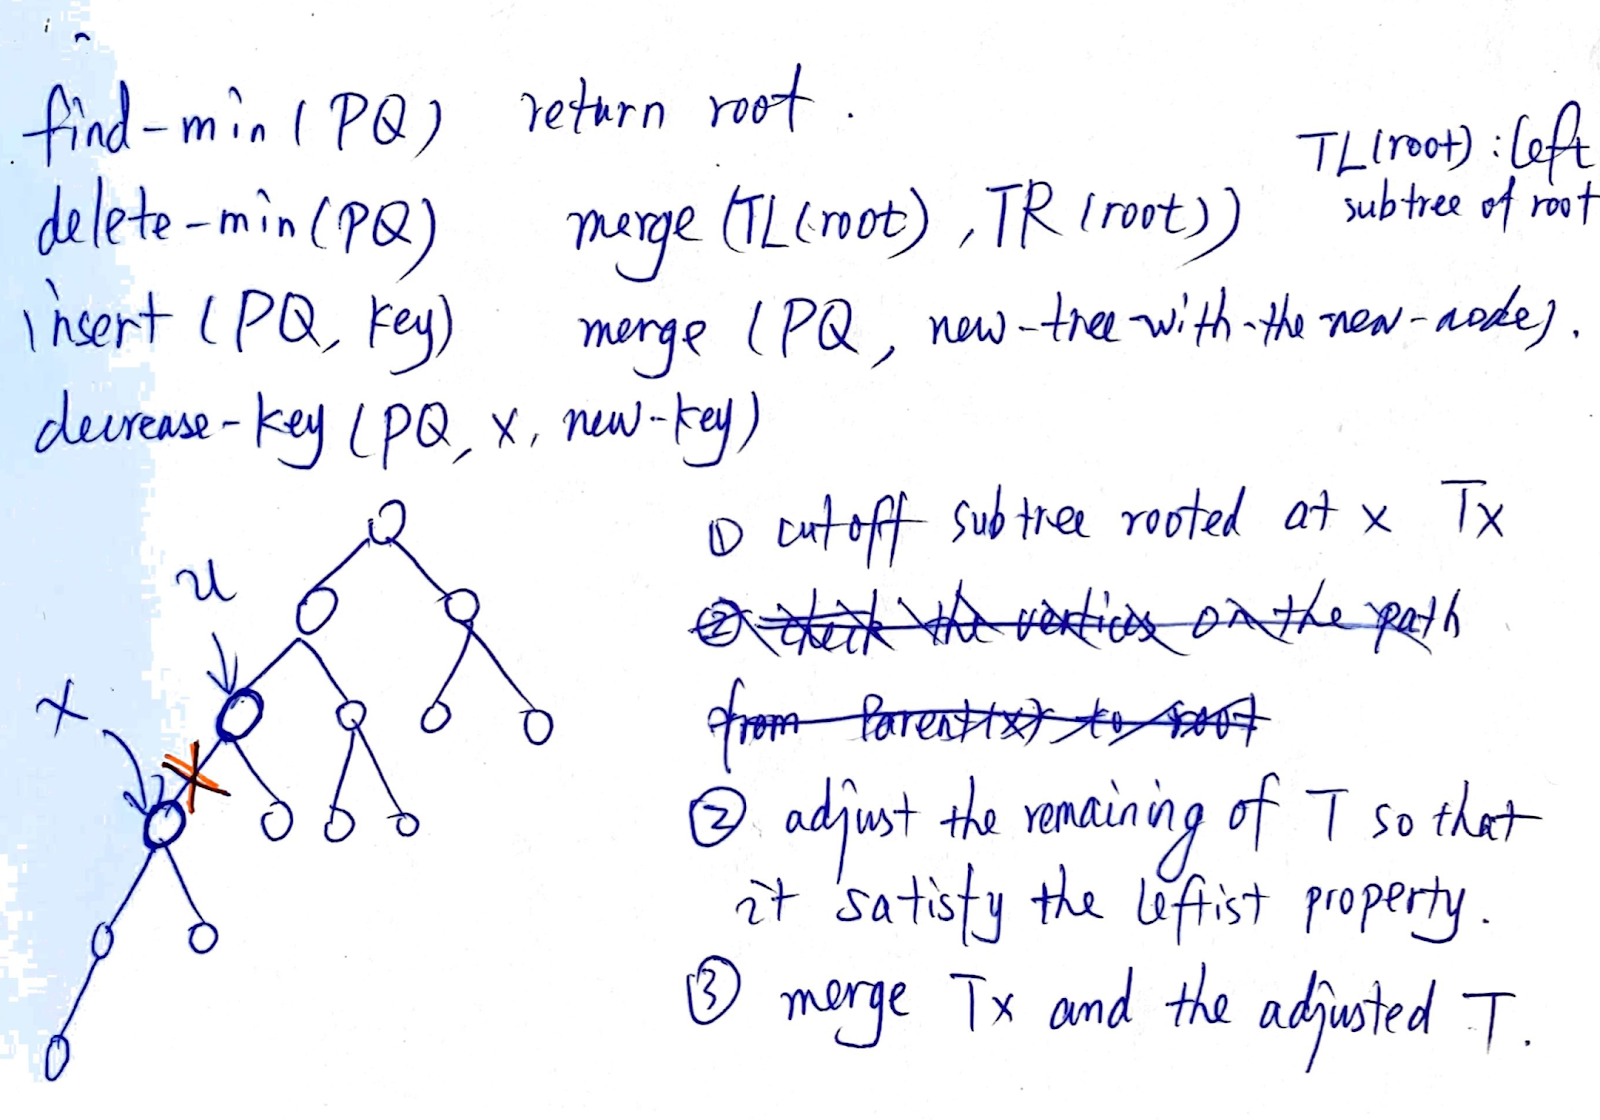 find-min (PQ) return root.
TL(root): left
subtree of root
delete-min (PQ) merge (TL(root), TR(root))
insert (PQ, key) merge (PQ, new-tree-with-the-new-node).
decrease-key (PQ, x, new-key)
① cutoff subtree rooted at x Tx
② check the vertices on the path
from Parent(x) to root
u
x
② adjust the remaining of T so that
it satisfy the leftist property.
③ merge Tx and the adjusted T.